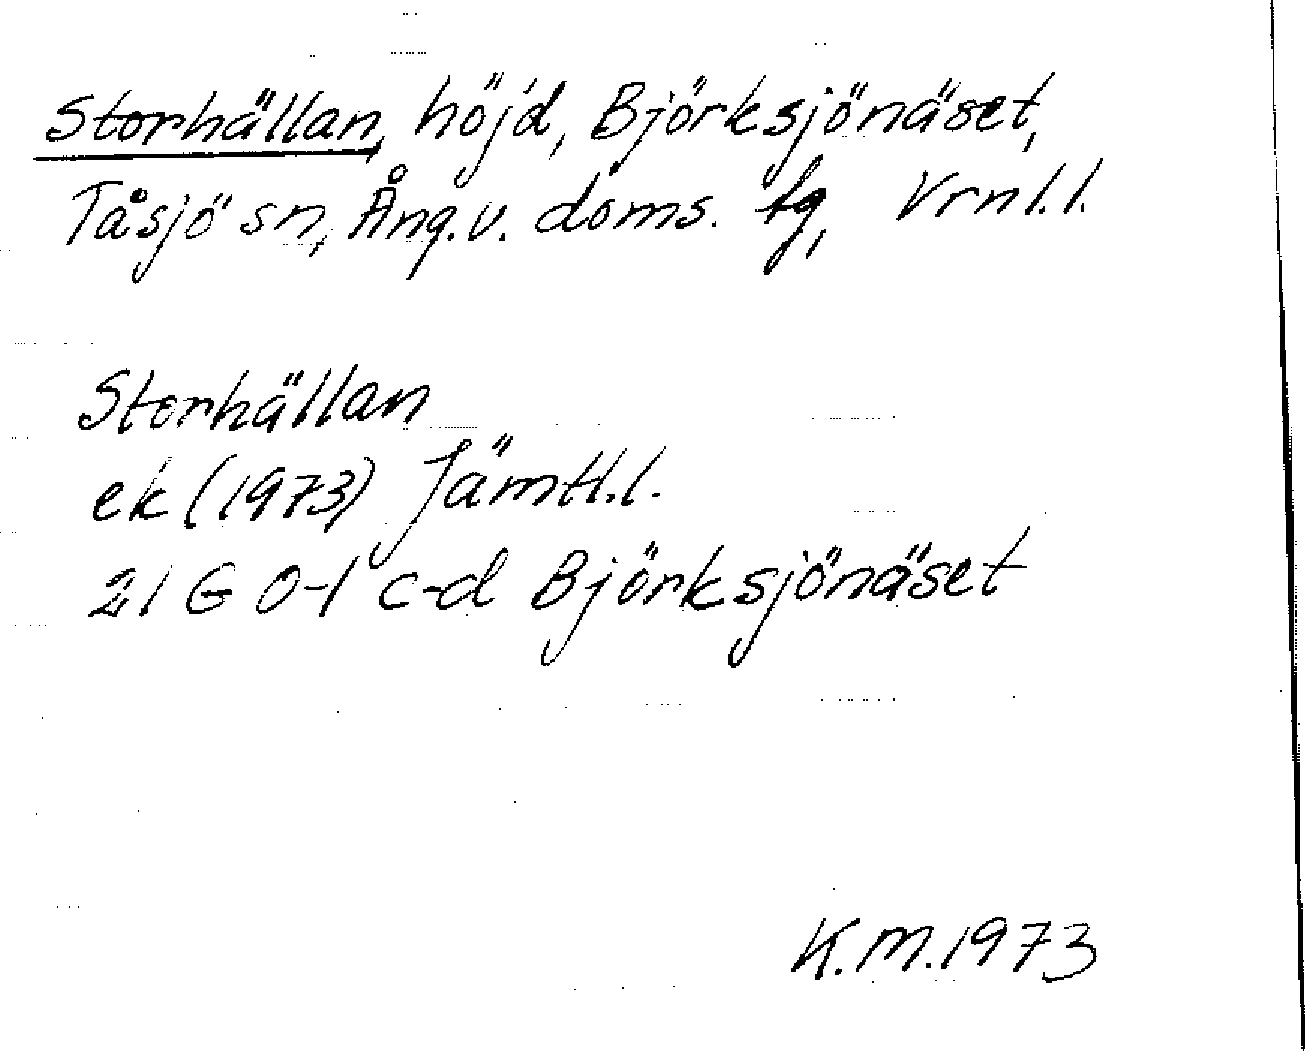 Storhällan, höjd, Björksjönäset,
Tåsjö sn, Ång.v. doms. fg, Vrnl.l.
Storhällan
ek (1973) Jämtl.l.
21 G 0-1 c-d Björksjönäset
K.M.1973